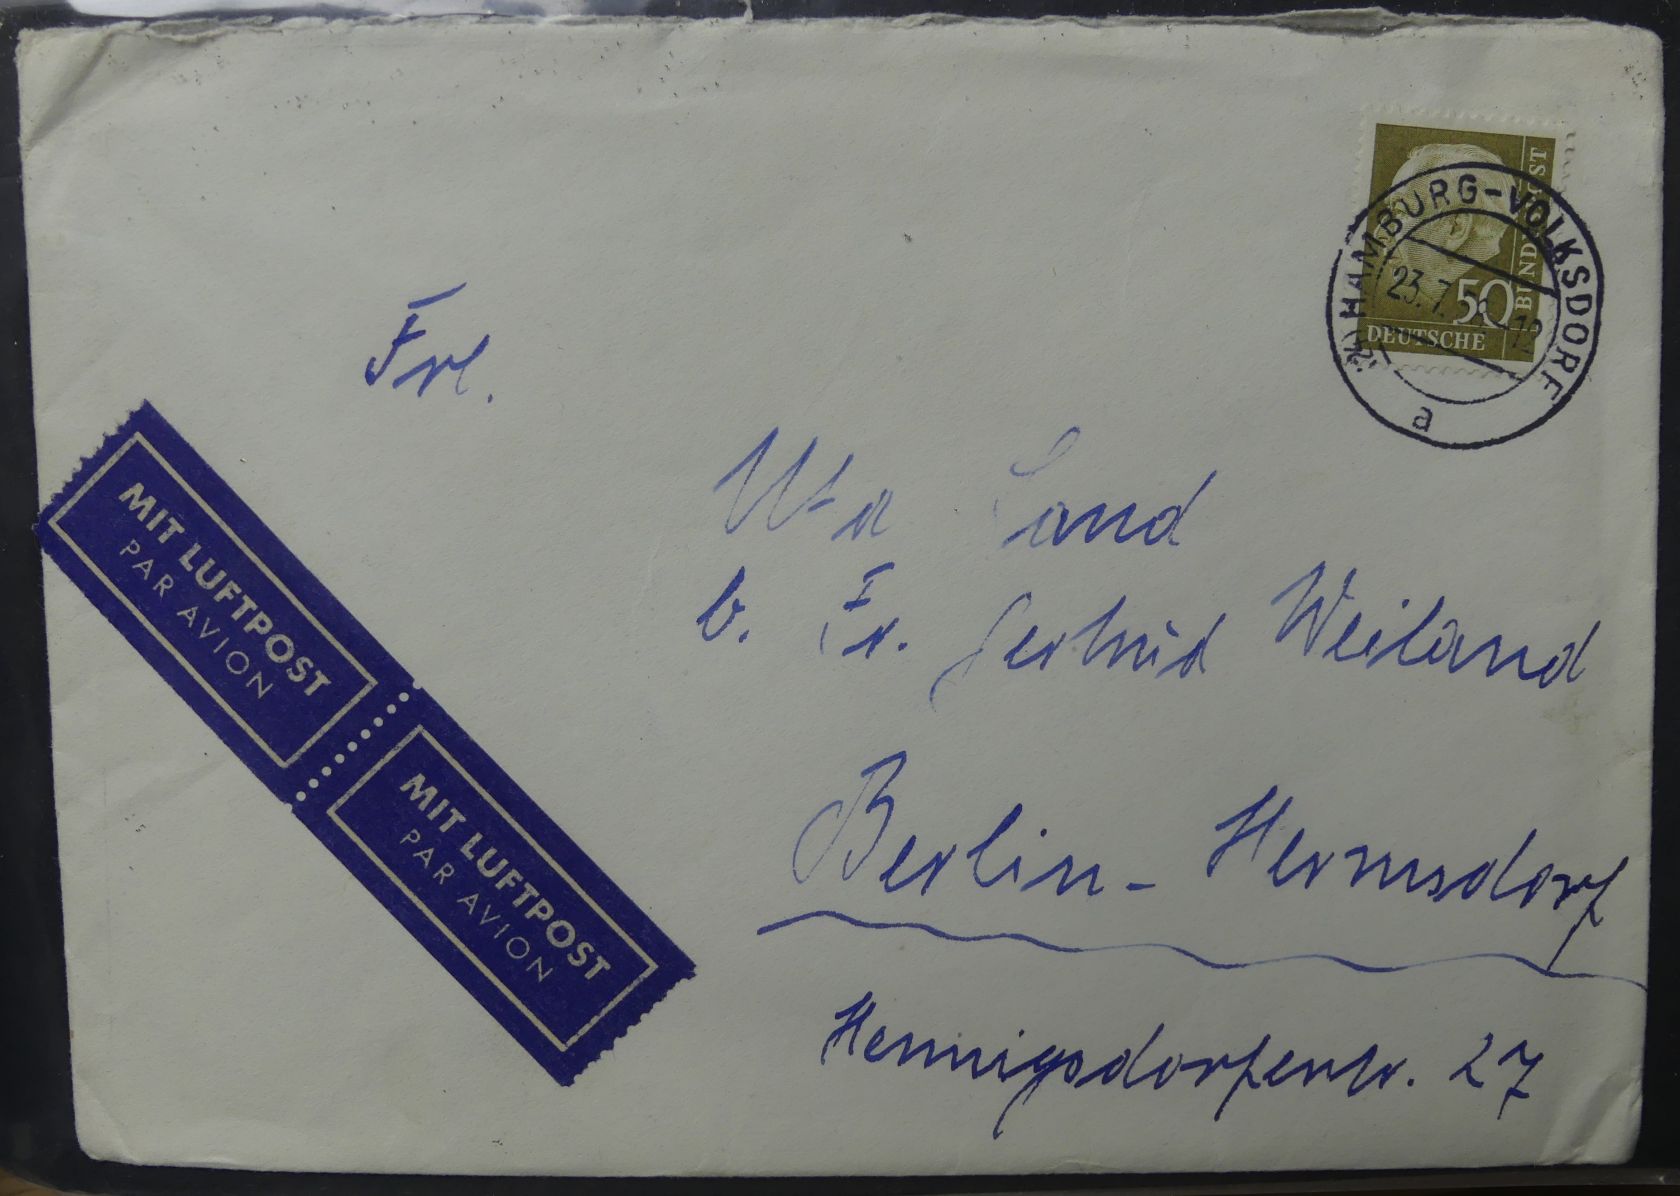 DEUTSCHE
BUNDESPOST
50
HAMBURG-VOLKSDORF
23.7.
12
a
Frl.
Uta Sand
b. Fr. Gertrud Weiland
Berlin-Hermsdorf
Hennigsdorferstr. 27
MIT LUFTPOST
PAR AVION
MIT LUFTPOST
PAR AVION